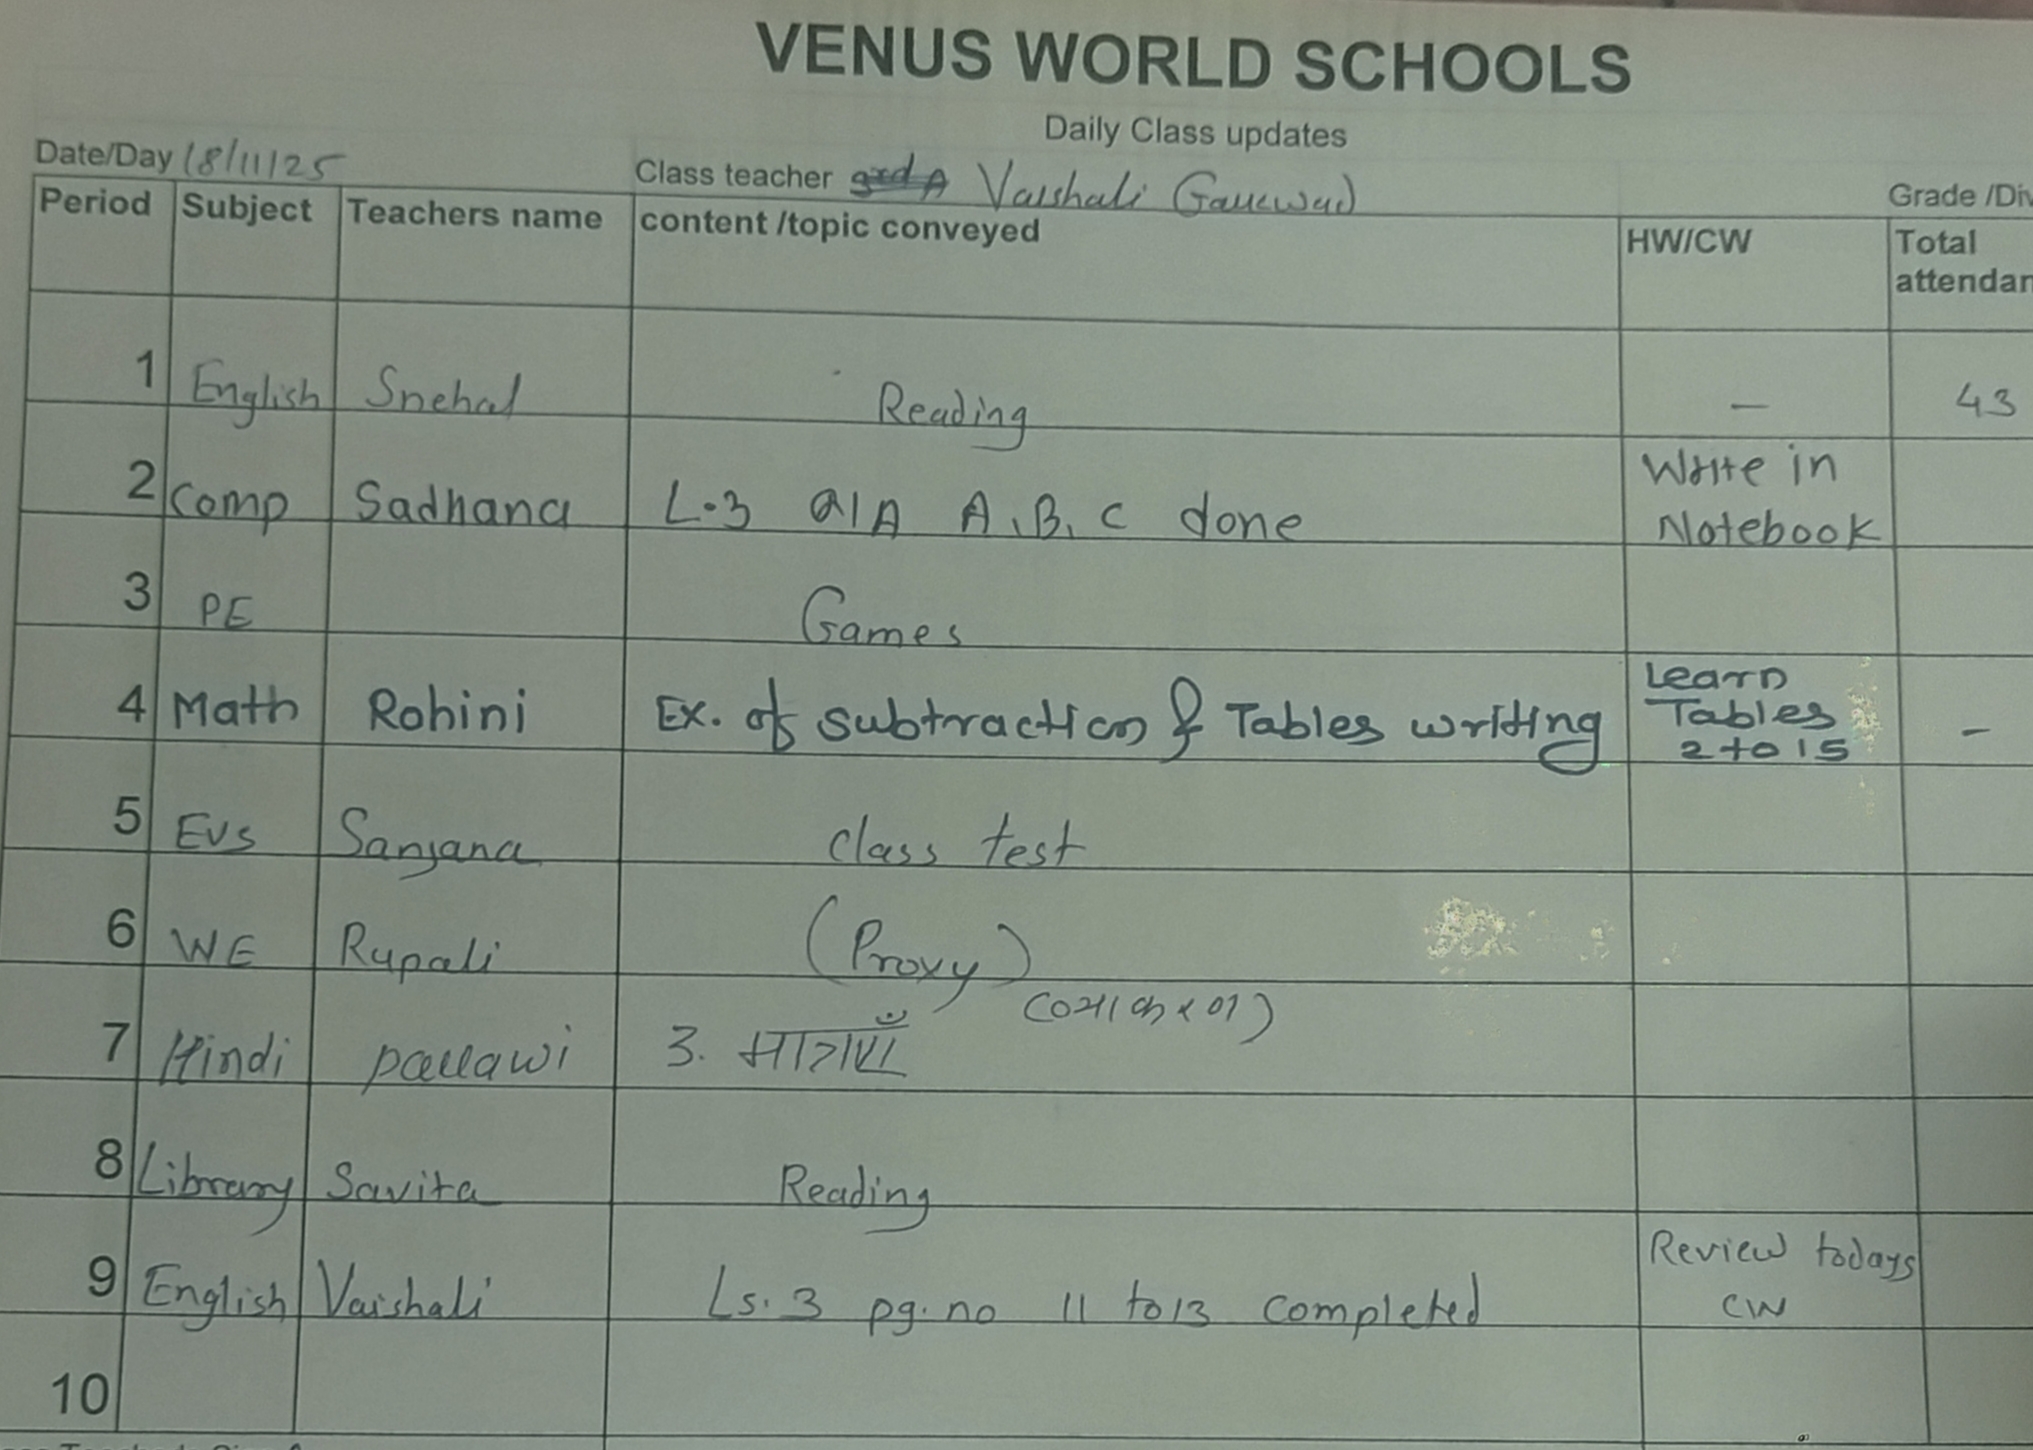 VENUS WORLD SCHOOLS
Daily Class updates
Date/Day 18/11/25 Class teacher Vaishali Grade /Div
Period Subject Teachers name content /topic conveyed HW/CW Total attendan
1 English Snehal Reading – 43
2 Comp Sadhana L.3 Q/A A, B, C done Write in Notebook
3 PE Games
4 Math Rohini Ex. of subtraction & Tables writing Learn Tables 2 to 15 –
5 EVS Sanjana class test
6 WE Rupali (Proxy)
7 Hindi 3. मात्राएँ
8 Library Savita Reading
9 English Vaishali Ls. 3 pg. no 11 to 13 completed Review todays CW
10